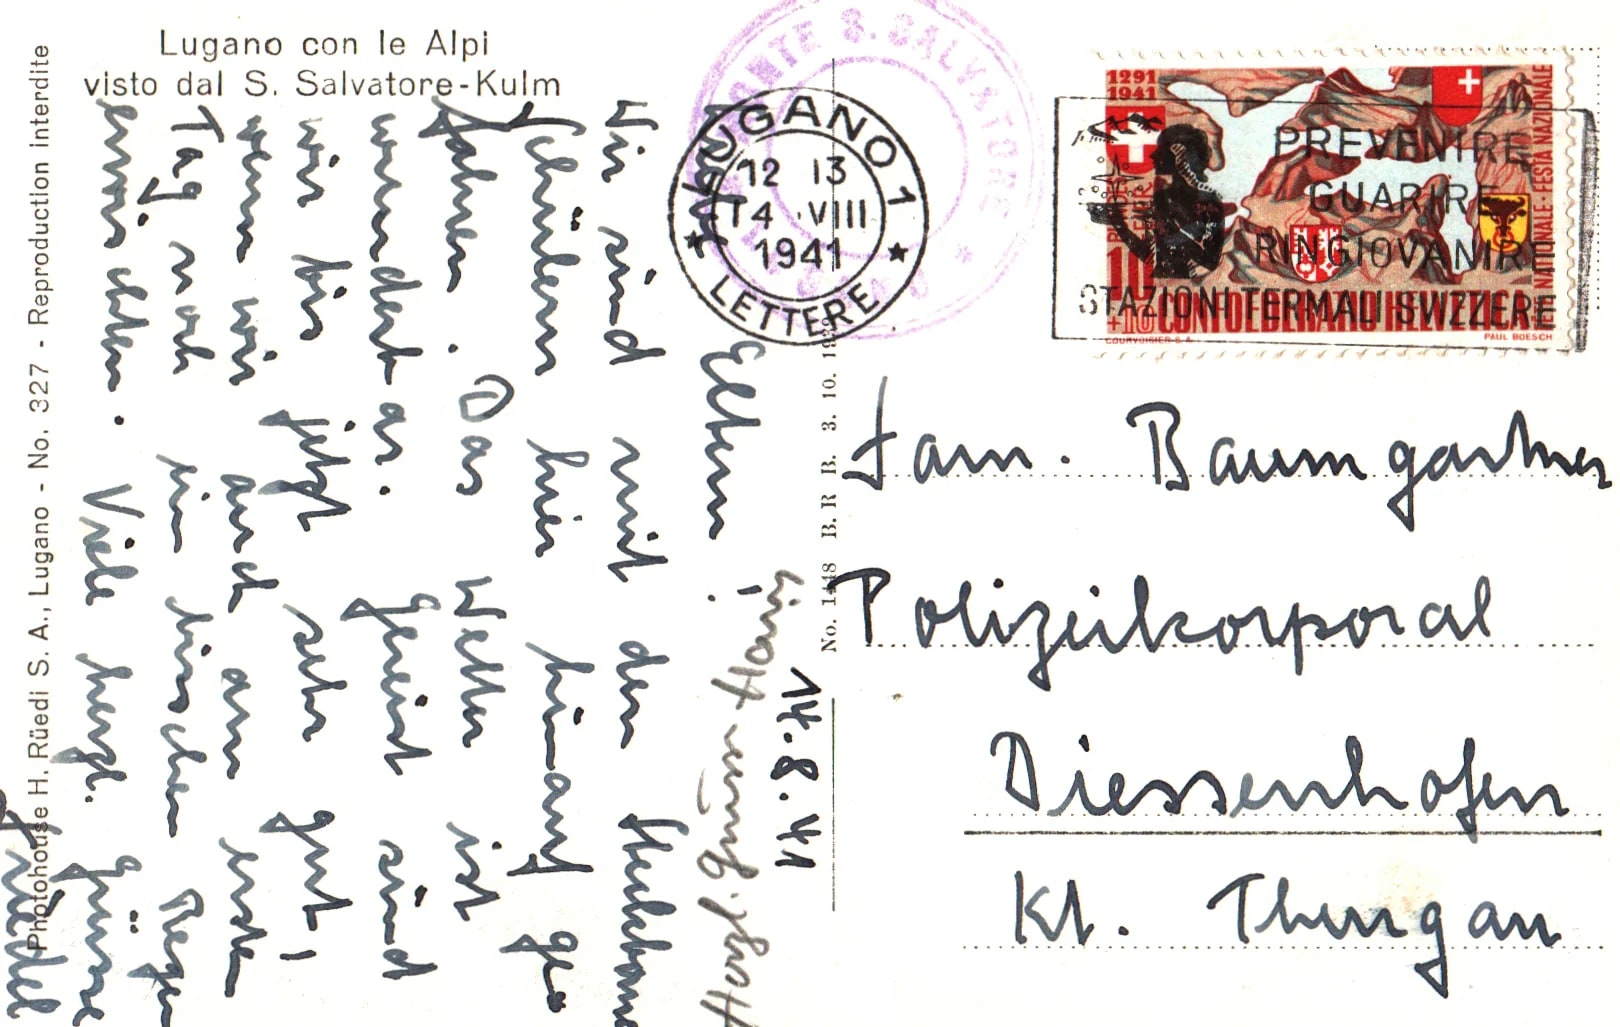 Lugano con le Alpi
visto dal S. Salvatore-Kulm
Photohouse H. Rüedi S. A., Lugano - No. 327 - Reproduction interdite
14.8.41
Liebe Eltern!
Wir sind mit den
Schülern hier hinauf ge
fahren. Das Wetter ist
wunderbar. Gereist sind
wir bis jetzt sehr gut,
wenn wir auch am ersten
Tag noch ein bisschen Regen
erwischten. Viele herzl. Grüsse
Friedel
Herzl. Grüsse
No. 1448 B. R B. 3. 10. 1939
MONTE S. SALVATORE
LUGANO 1
12 13
14 · VIII
1941
LETTERE
PREVENIRE
GUARIRE
RINGIOVANIRE
STAZIONI TERMALI SVIZZERE
1291
1941
10
+10
CONFOEDERATIO HELVETICA
FÊTE NATIONALE - FESTA NAZIONALE
COURVOISIER S.A.
PAUL BOESCH
Fam. Baumgartner
Polizeikorporal
Diessenhofen
Kt. Thurgau